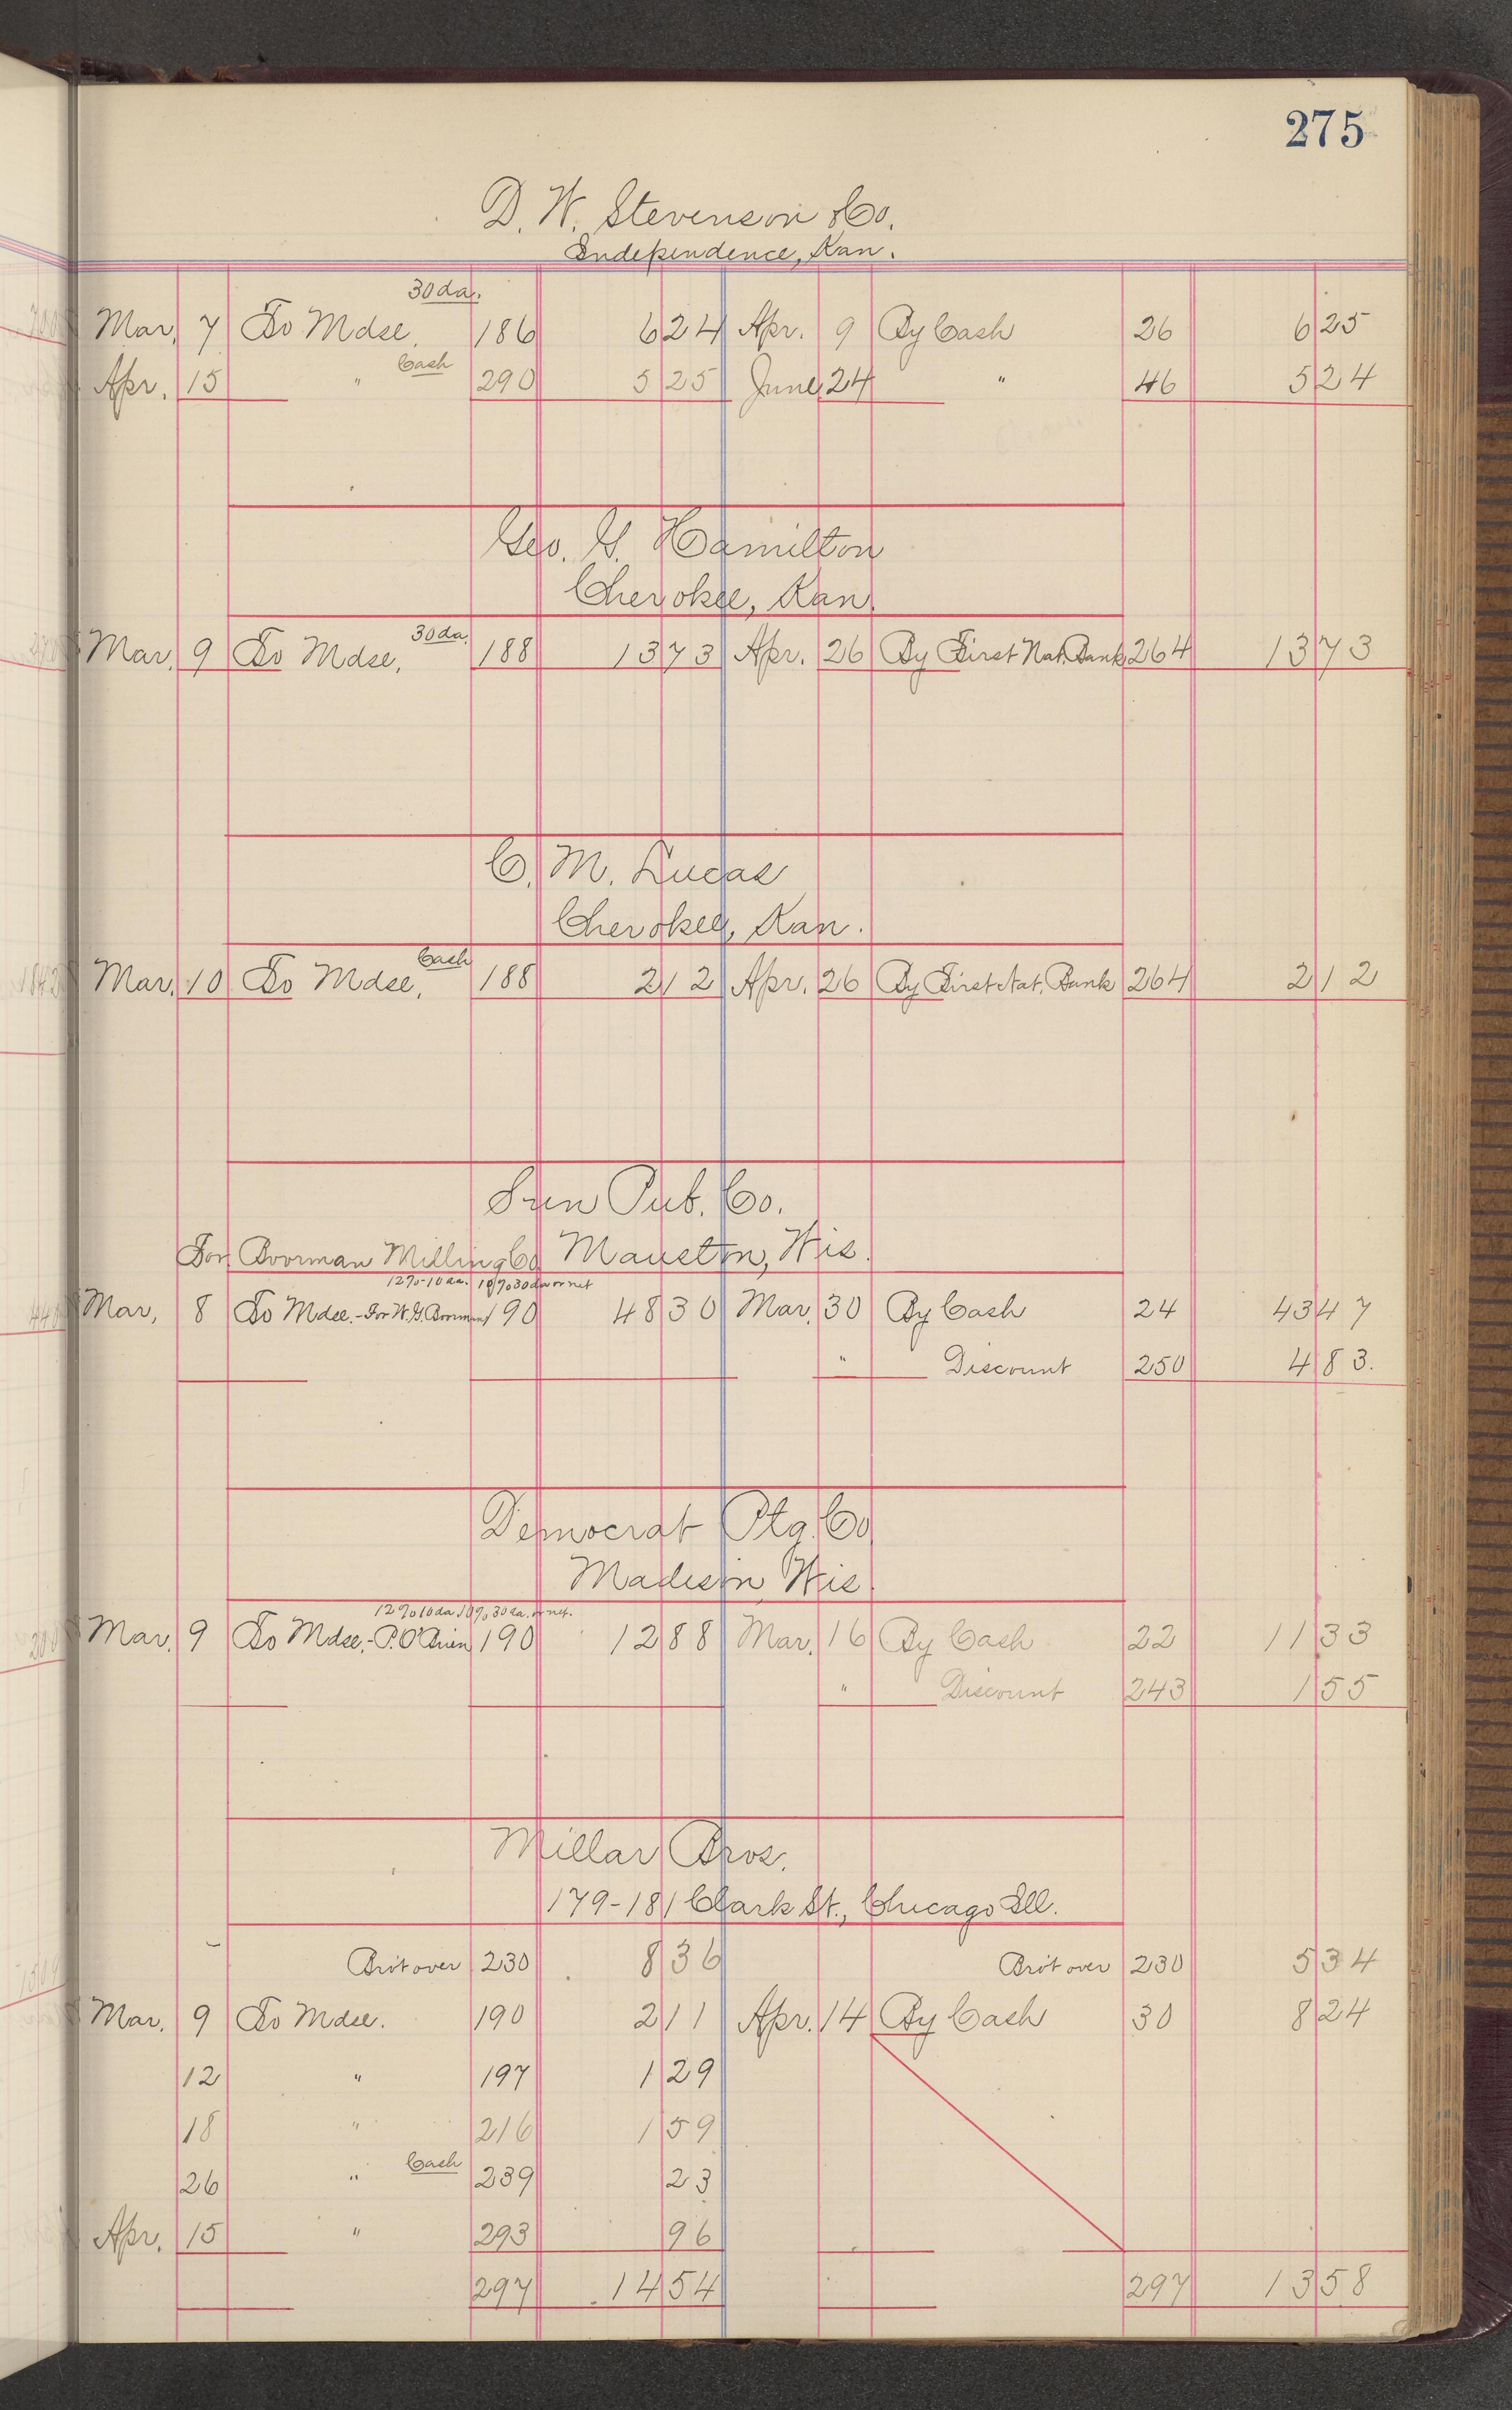 275
D. W. Stevenson & Co.
Independence, Kan.
30 da.
Mar. 7 To Mdse. 186 6 24 Apr. 9 By Cash 26 6 25
Cash
Apr. 15 " 290 5 25 June 24 " 46 5 24
Geo. G. Hamilton
Cherokee, Kan.
30 da.
Mar. 9 To Mdse. 188 13 73 Apr. 26 By First Nat. Bank 264 13 73
C. M. Lucas
Cherokee, Kan.
Cash
Mar. 10 To Mdse. 188 2 12 Apr. 26 By First Nat. Bank 264 2 12
Sun Pub. Co.
For Boorman Milling Co. Mauston, Wis.
12% 10 da. 10% 30 da or net
Mar. 8 To Mdse.-For W. G. Boorman 190 48 30 Mar. 30 By Cash 24 43 47
" Discount 250 4 83.
Democrat Ptg. Co.
Madison, Wis.
12% 10 da. 10% 30 da. or net.
Mar. 9 To Mdse.-P. O'Brien 190 12 88 Mar. 16 By Cash 22 11 33
" Discount 243 1 55
Millar Bros.
179-181 Clark St., Chicago Ill.
Bro't over 230 8 36 Bro't over 230 5 34
Mar. 9 To Mdse. 190 2 11 Apr. 14 By Cash 30 8 24
12 " 197 1 29
18 " 216 1 59
Cash
26 " 239 23
Apr. 15 " 293 96
297 14 54 297 13 58